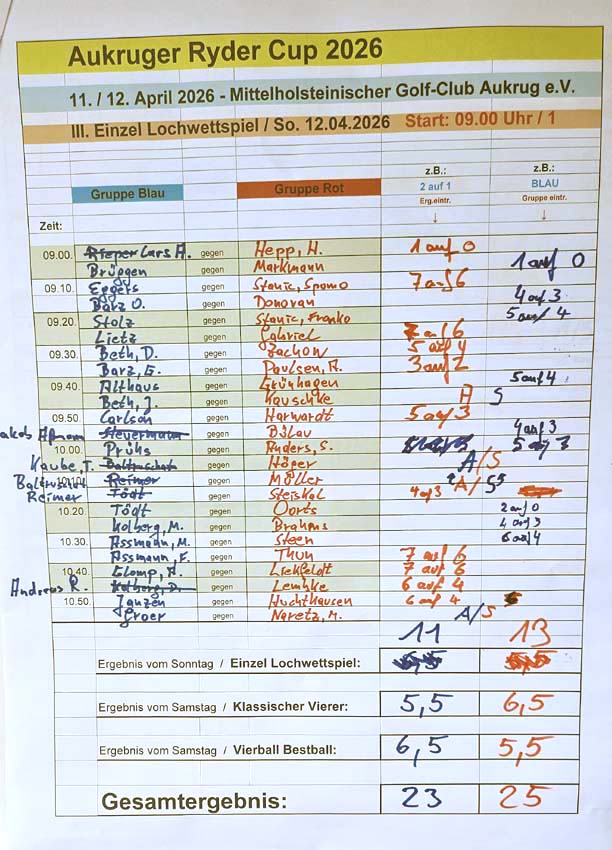 Aukruger Ryder Cup 2026
11. / 12. April 2026 - Mittelholsteinischer Golf-Club Aukrug e.V.
III. Einzel Lochwettspiel / So. 12.04.2026 Start: 09.00 Uhr / 1
z.B.: z.B.:
Gruppe Blau Gruppe Rot 2 auf 1 BLAU
Erg.eintr. Gruppe eintr.
↓ ↓
Zeit:
09.00. Rieper Lars H. gegen Hepp, H. 1 auf 0
Brüggen gegen Markmann 1 auf 0
09.10. Eggers gegen Stanic, Spomo 7 auf 6
Barz O. gegen Donovan 4 auf 3
09.20. Stolz gegen Stanic, Franko 5 auf 4
Lietz gegen Gabriel 7 auf 6
09.30. Beth, D. gegen Zachow 5 auf 4
Barz, G. gegen Paulsen, H. 3 auf 2
09.40. Althaus gegen Grünhagen 5 auf 4
Beth, J. gegen Kauschke A S
09.50. Carlson gegen Harwardt 5 auf 3
Steuermann gegen Bülau 4 auf 3
10.00. Prühs gegen Anders, S. 5 auf 3
Kaube, T. Baltruschat gegen Höper A/S
10.10. Baltruschat Reimer gegen Möller A/S
Reimer Tödt gegen Steiskal 4 auf 3
10.20. Tödt gegen Oorts 2 auf 0
Kolberg, M. gegen Brahms 4 auf 3
10.30. Assmann, M. gegen Steen 6 auf 4
Assmann, F. gegen Thun 7 auf 6
10.40. Glomp, A. gegen Liekfeldt 7 auf 6
Andreas R. Kolberg, D. gegen Lemhke 6 auf 4
10.50. Janzen gegen Huchthausen 6 auf 4
Groer gegen Naretz, M. A/S
11 13
Ergebnis vom Sonntag / Einzel Lochwettspiel:
Ergebnis vom Samstag / Klassischer Vierer: 5,5 6,5
Ergebnis vom Samstag / Vierball Bestball: 6,5 5,5
Gesamtergebnis: 23 25